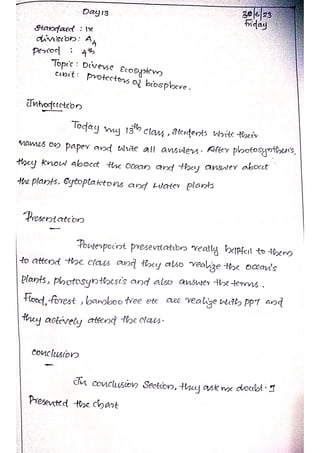 Day 13
30/6/23
Friday
Standard : IX
division : A4
period : 4th
Topic : Diverse Ecosystem
Unit : Protectors of biosphere.
Introduction
Today my 13th class, students write their
names on paper and write all answers. After photosynthesis,
they know about the ocean and they answer about
the plants. Cytoplaktons and Water plants
Presentation
Powerpoint presentation really helpful to them
to attend the class and they also realize the ocean's
plants, photosynthesis and also answer the terms.
Flood, forest, bamboo tree etc are realize with ppt and
they actively attend the class.
Conclusion
In conclusion Section, they ask me doubt. I
Presented the chart